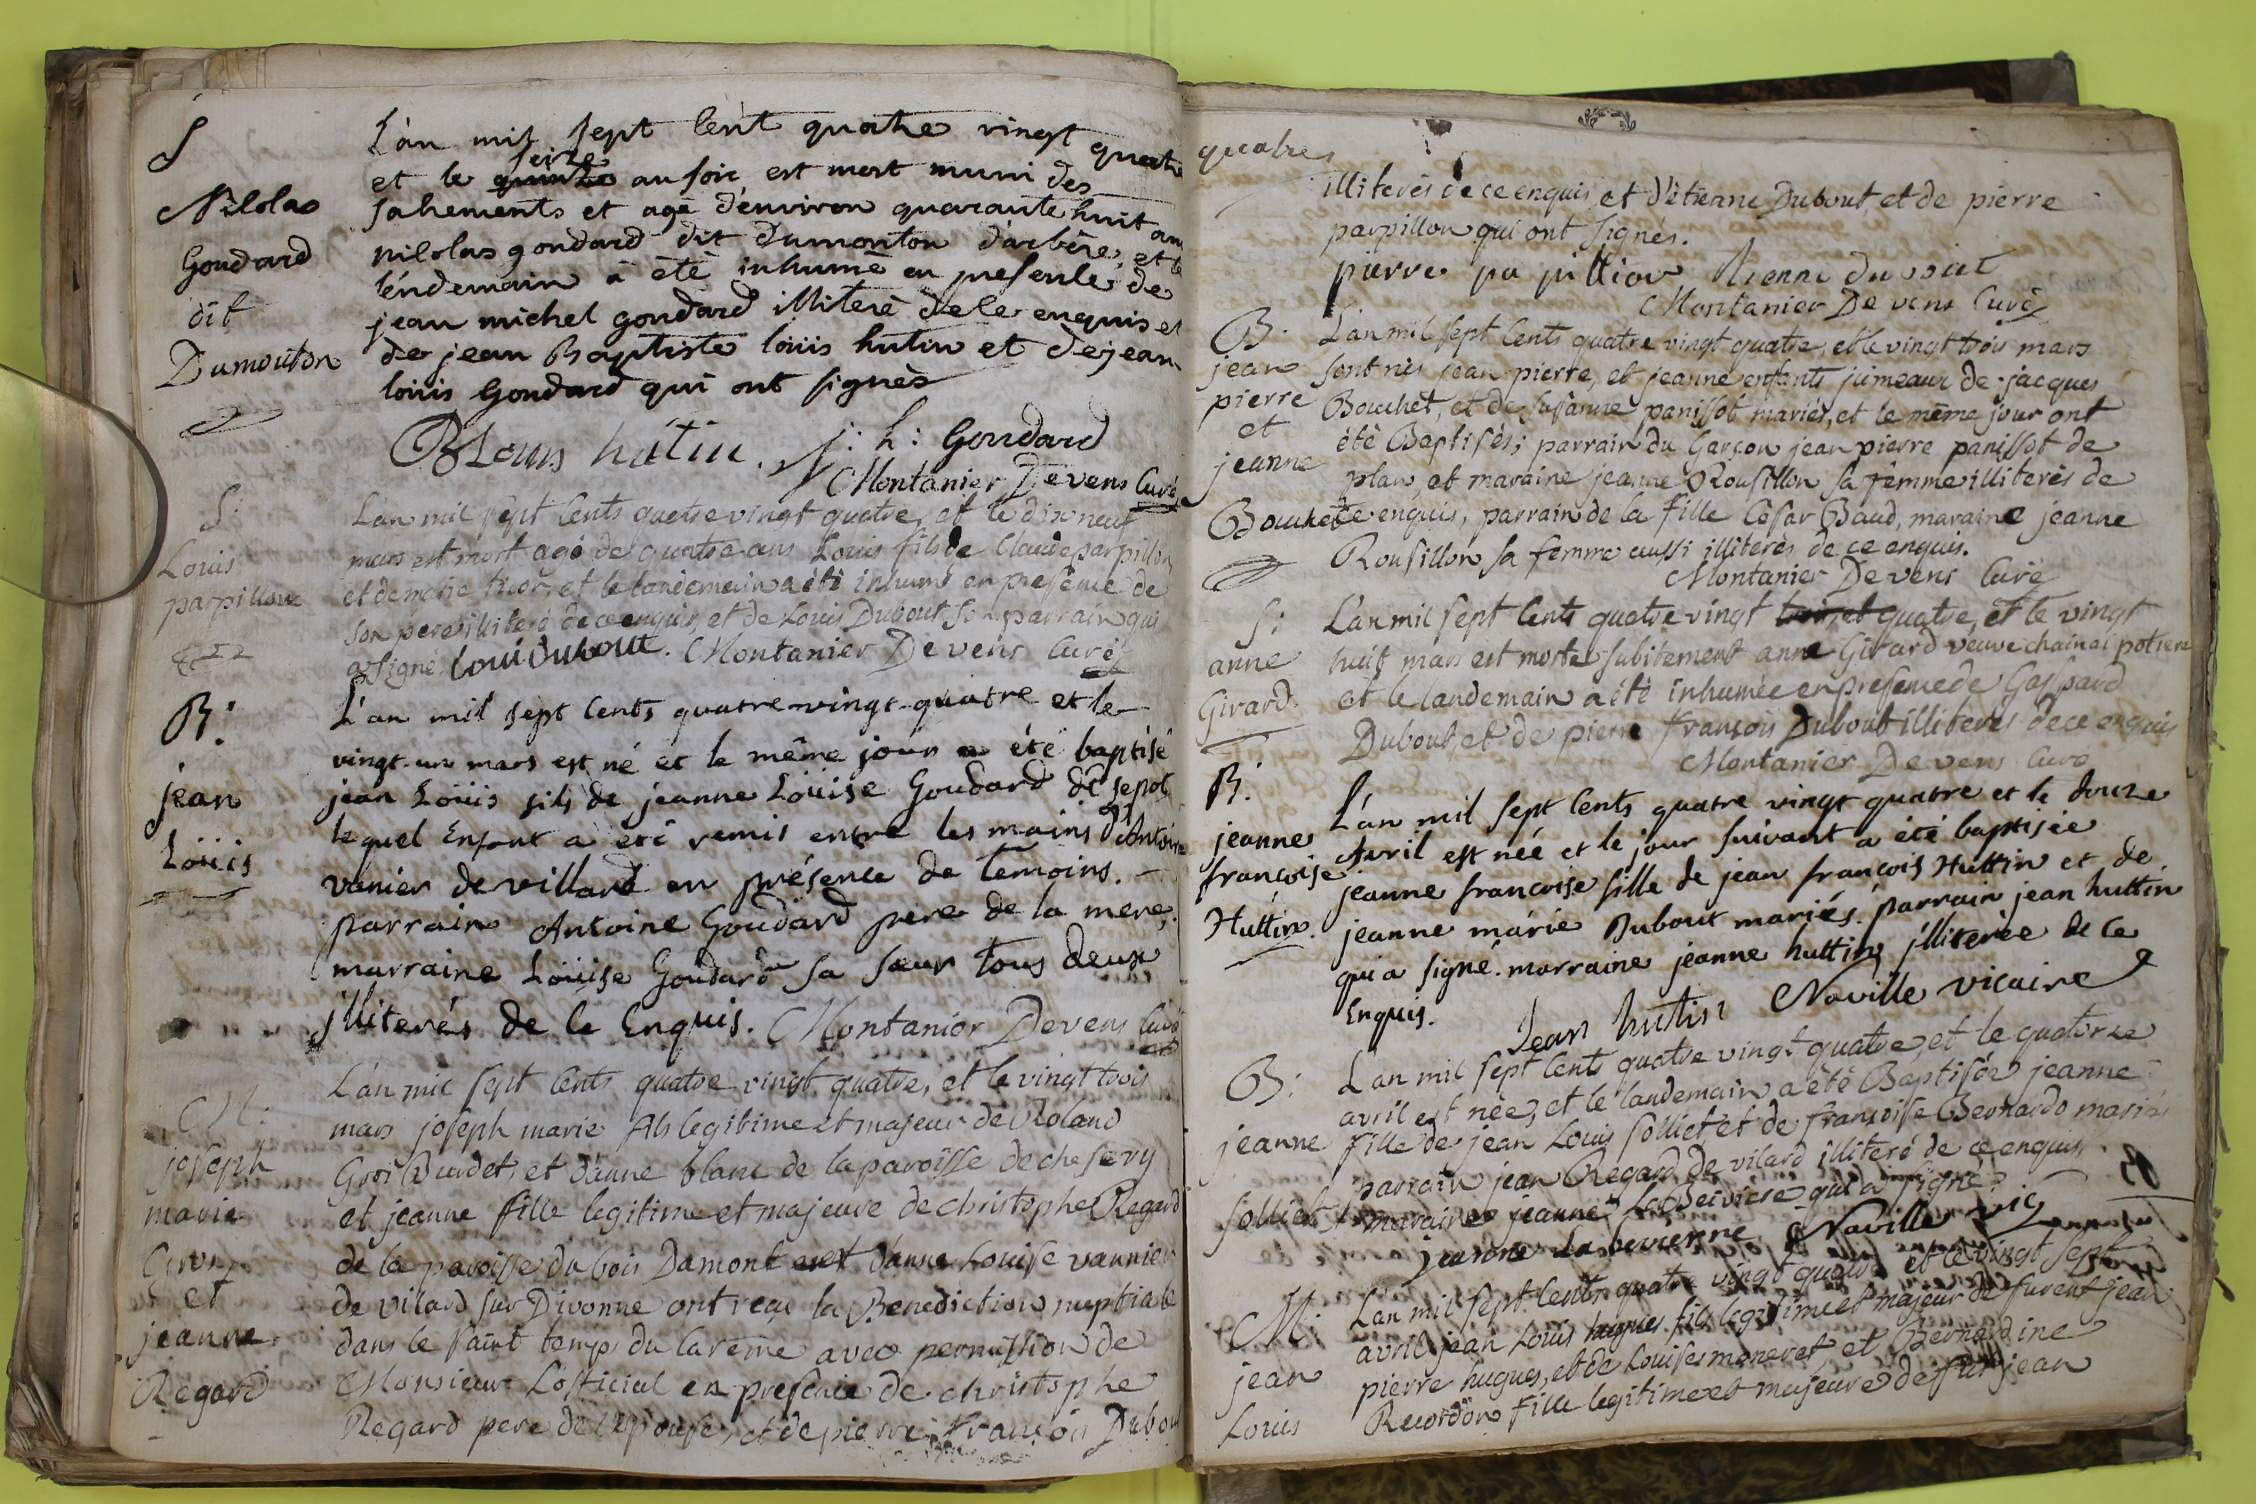 S
Nicolas
Goudard
dit
Dumouton
L'an mil sept cent quatre vingt quatre
et le seize
quinze au soir est mort muni des
sacrements et agé d'environ quarante huit ans
nicolas goudard dit Dumonton d'arbère, et le
lendemain à été inhumé en presence de
jean michel goudard illiteré de ce enquis et
de jean Baptiste loüis hutin et de jean
loüis Goudard qui ont signès
BLouis hutin. j: h: Goudard
Montanier Devens Curé
S:
Louis
parpillon
L'an mil sept cents quatre vingt quatre, et le dix neuf
mars est mort agé de quatre ans Louis fils de Claude parpillon
et de marie et le landemain a été inhumé en presence de
son pere illiteré de ce enquis, et de Louis Dubout son parrain qui
a signé loui dubout. Montanier Devens Curé
B:
jean
Loüis
L'an mil sept cents quatre vingt quatre et le
vingt-un mars est né et le même jour a été baptisé
jean Loüis fils de jeanne Loüise Goudard de sepot
lequel Enfant a eté remis entre les mains d'Antoine
vanier de villard en présence de temoins.
parrain Antoine Goudard pere de la mere,
marraine Loüise Goudard sa sœur tous deux
jlliterés de ce Enquis. Montanier Devens Curé
M:
joseph
marie
Gros
et
jeanne
Regard
L'an mil sept cents quatre vingt quatre, et le vingt trois
mars joseph marie fils legitime et majeur de Roland
Gros Burdet, et d'anne blanc de la paroisse de chesery
et jeanne fille legitime et majeure de christophe Regard
de la paroisse du bois Damont et d'anne Louise vannier
de vilard sur Divonne ont reçu la Benediction nuptiale
dans le saint temps du carême avec permission de
Monsieur L'official en presence de christophe
Regard pere de l'épouse, et de pierre François Dubout
quatre
illiterés de ce enquis, et d'étienne Dubout, et de pierre
parpillon qui ont signés.
pierre pa pillion
Montanier De vens Curé
B:
jean
pierre
et
jeanne
Bouchet
L'an mil sept cents quatre vingt quatre, et le vingt trois mars
sont nès jean pierre, et jeanne enfants jumeaux de jacques
Bouchet, et de Susanne panissot mariés, et le même jour ont
été Baptisés; parrain du Garçon jean pierre panissot de
plan, et maraine jeanne Rousillon sa femme illiterès de
ce enquis, parrain de la fille César Baud, maraine jeanne
Rousillon sa femme aussi illiterès de ce enquis.
Montanier Devens Curé
S:
anne
Girard
L'an mil sept cents quatre vingt trois, et quatre, et le vingt
huit mars est morte subitement anne Girard veuve potiere
et le landemain a été inhumée en presence de Gaspard
Dubout et de pierre françois Dubout illiterés de ce enquis
Montanier Devens Curé
B:
jeanne
francoise
Huttin.
L'an mil sept cents quatre vingt quatre et le douze
Avril est née et le jour suivant a été baptisée
jeanne francoise fille de jean françois Huttin et de
jeanne márie Dubout mariés. parrain jean huttin
qui a signé. marraine jeanne huttin jlliterée de ce
Enquis.
Jean hutin Naville vicaire
B:
jeanne
solliet
L'an mil sept cents quatre vingt quatre, et le quatorze
avril est née, et le landemain a été Baptisée jeanne
fille de jean Louis solliet et de françoise Bernardo mariés
parrain jean Regard de vilard illiteré de ce enquis
maraine jeanne qui a signé.
jeanne Naville vic
M:
jean
Louis
L'an mil sept cents quatre vingt quatre et le vingt sept
avril jean Louis hugues fils legitime et majeur de furent jean
pierre hugues, et de Louise moneret, et Bernardine
Recordon fille legitime et majeure de fut jean